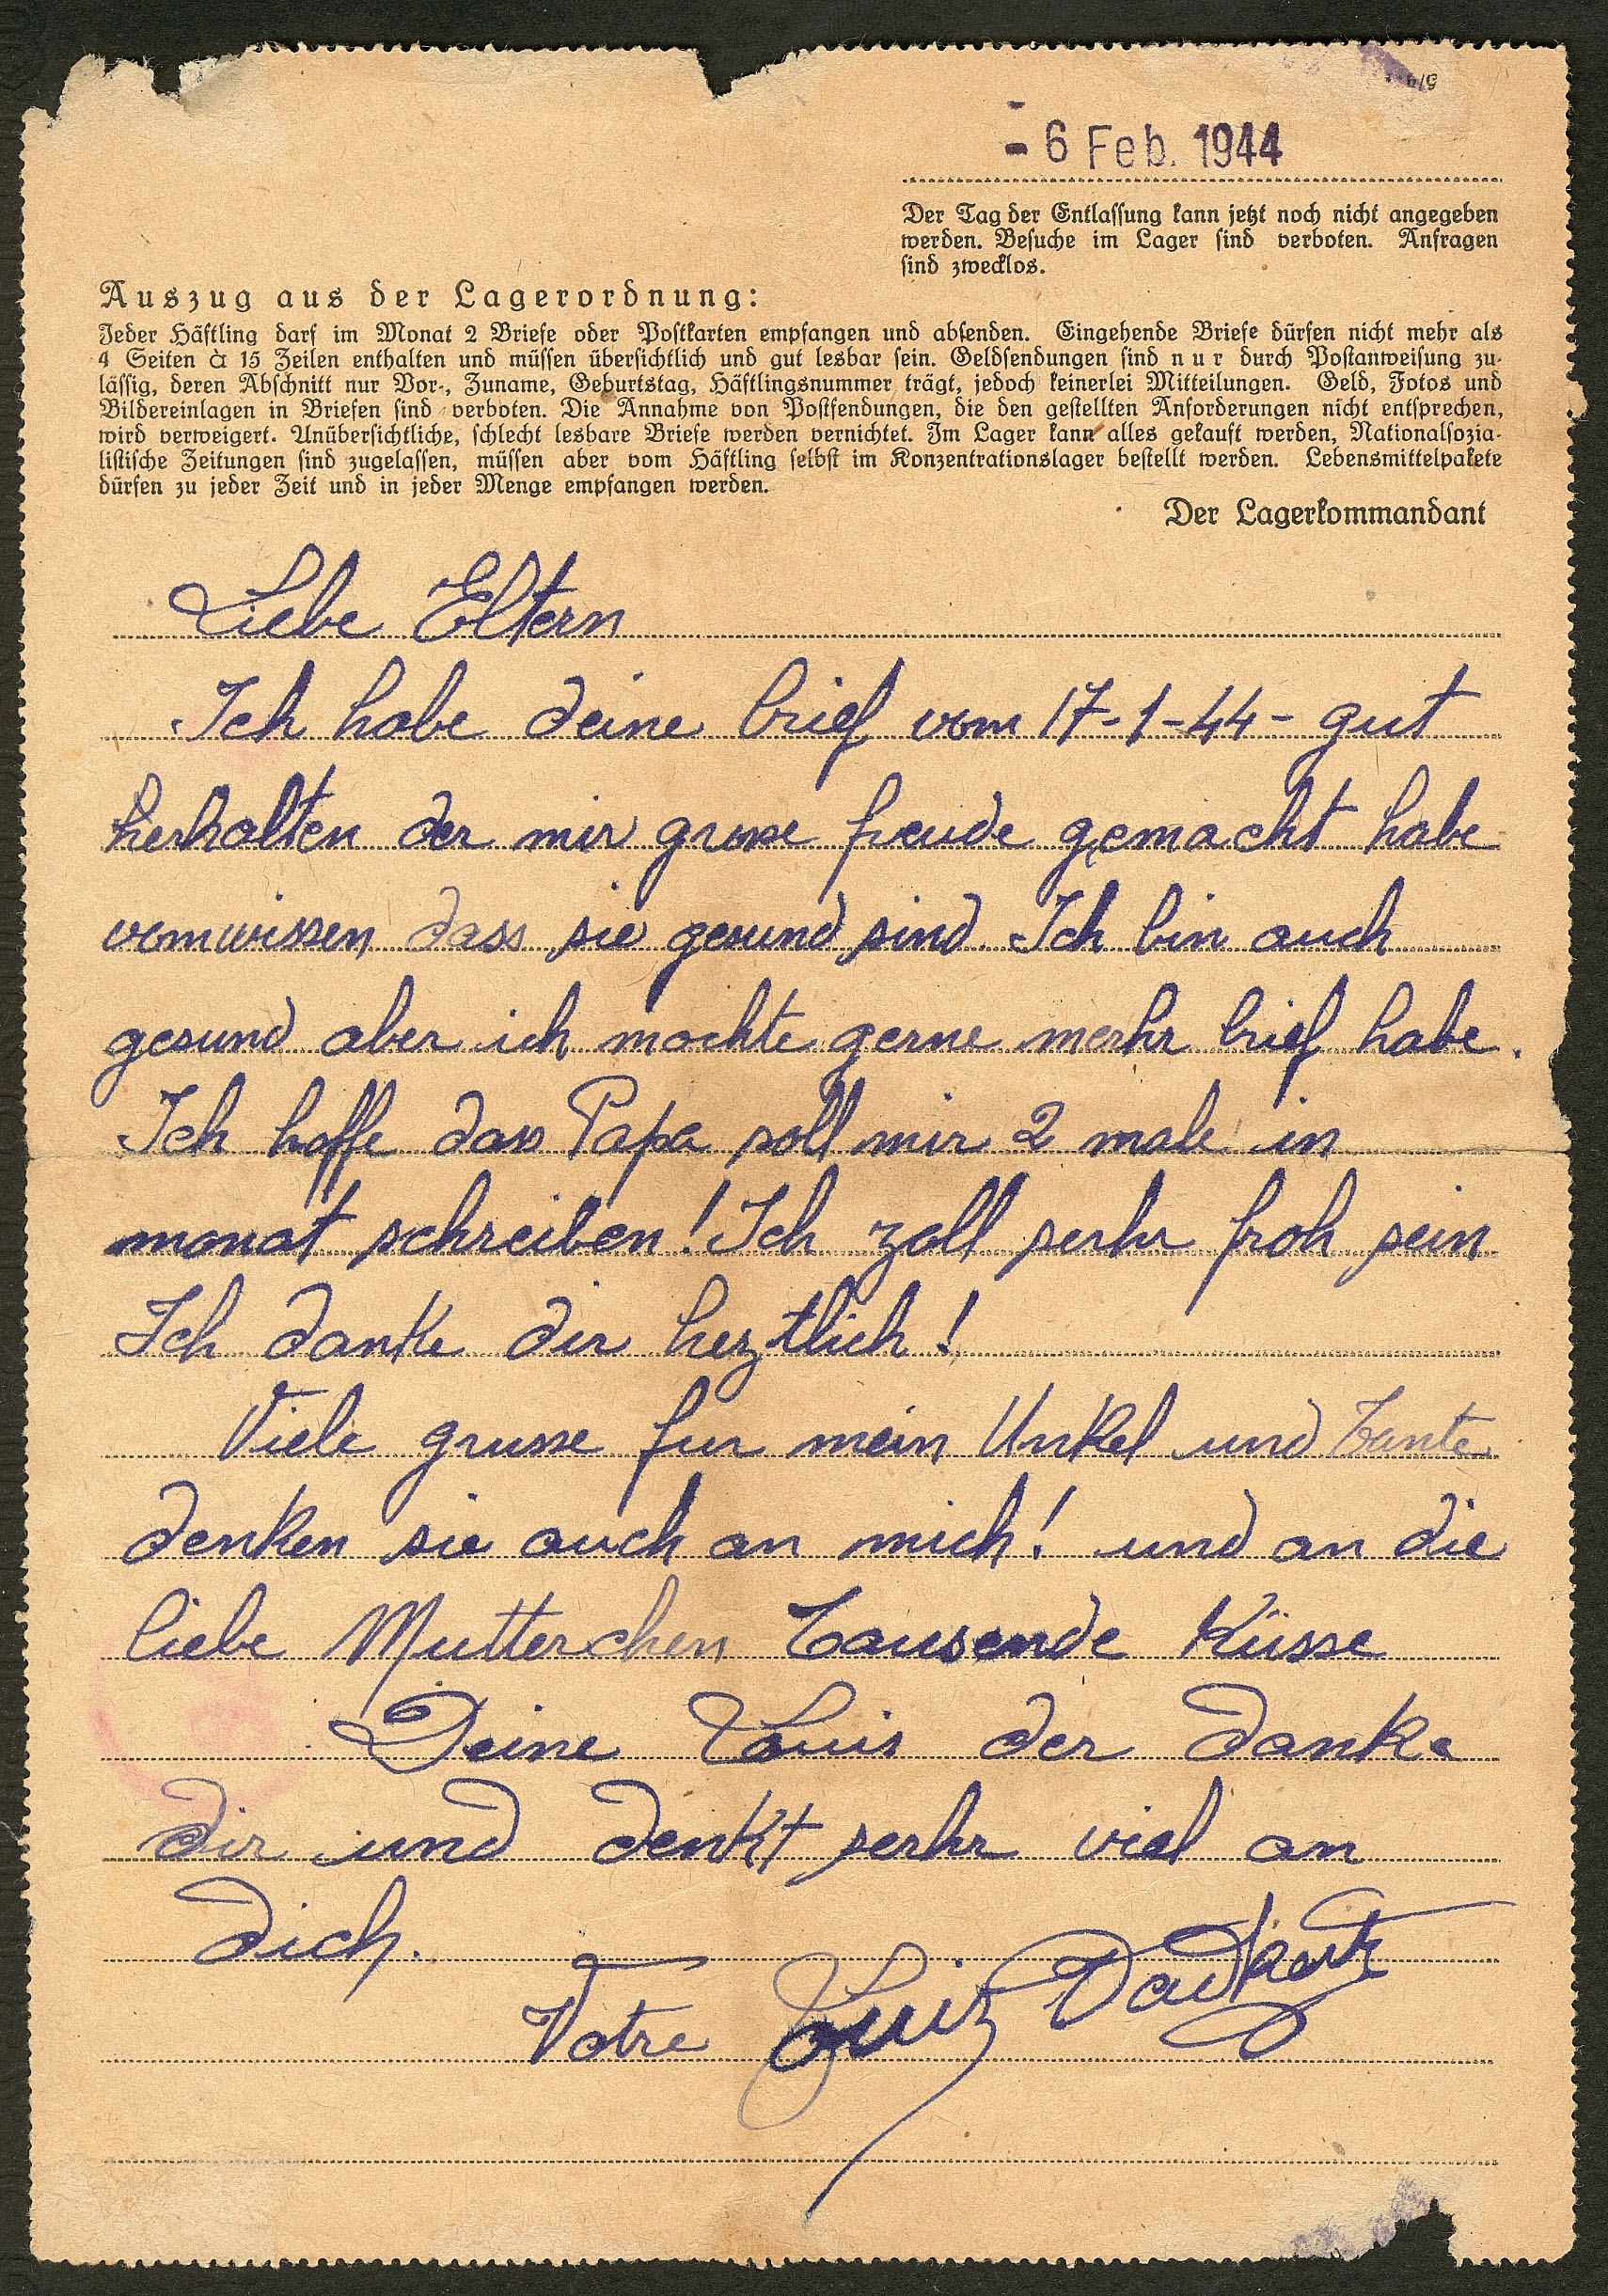 - 6 Feb. 1944
Der Tag der Entlassung kann jetzt noch nicht angegeben
werden. Besuche im Lager sind verboten. Anfragen
sind zwecklos.
Auszug aus der Lagerordnung:
Jeder Häftling darf im Monat 2 Briefe oder Postkarten empfangen und absenden. Eingehende Briefe dürfen nicht mehr als
4 Seiten à 15 Zeilen enthalten und müssen übersichtlich und gut lesbar sein. Geldsendungen sind nur durch Postanweisung zu-
lässig, deren Abschnitt nur Vor-, Zuname, Geburtstag, Häftlingsnummer trägt, jedoch keinerlei Mitteilungen. Geld, Fotos und
Bildereinlagen in Briefen sind verboten. Die Annahme von Postsendungen, die den gestellten Anforderungen nicht entsprechen,
wird verweigert. Unübersichtliche, schlecht lesbare Briefe werden vernichtet. Im Lager kann alles gekauft werden, Nationalsozia-
listische Zeitungen sind zugelassen, müssen aber vom Häftling selbst im Konzentrationslager bestellt werden. Lebensmittelpakete
dürfen zu jeder Zeit und in jeder Menge empfangen werden.
Der Lagerkommandant
Liebe Eltern
Ich habe deine brief vom 17-1-44- gut
herhalten der mir grosse freude gemacht habe
vom wissen dass sie gesund sind. Ich bin auch
gesund aber ich mochte gerne merhr brief habe.
Ich hoffe dass Papa soll mir 2 male in
monat schreiben! Ich zoll serhr froh sein
Ich danke dir heztlich!
Viele grusse fur mein Unkel und Tante
denken sie auch an mich! und an die
liebe Mutterchen Tausende Küsse
Deine Louis der danke
dir und denkt serhr viel an
dich.
Votre Louis